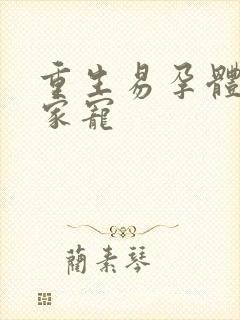 重生易孕體
家寵
藺素琴